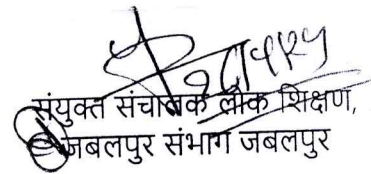 संयुक्त संचालक लोक शिक्षण,
जबलपुर संभाग जबलपुर